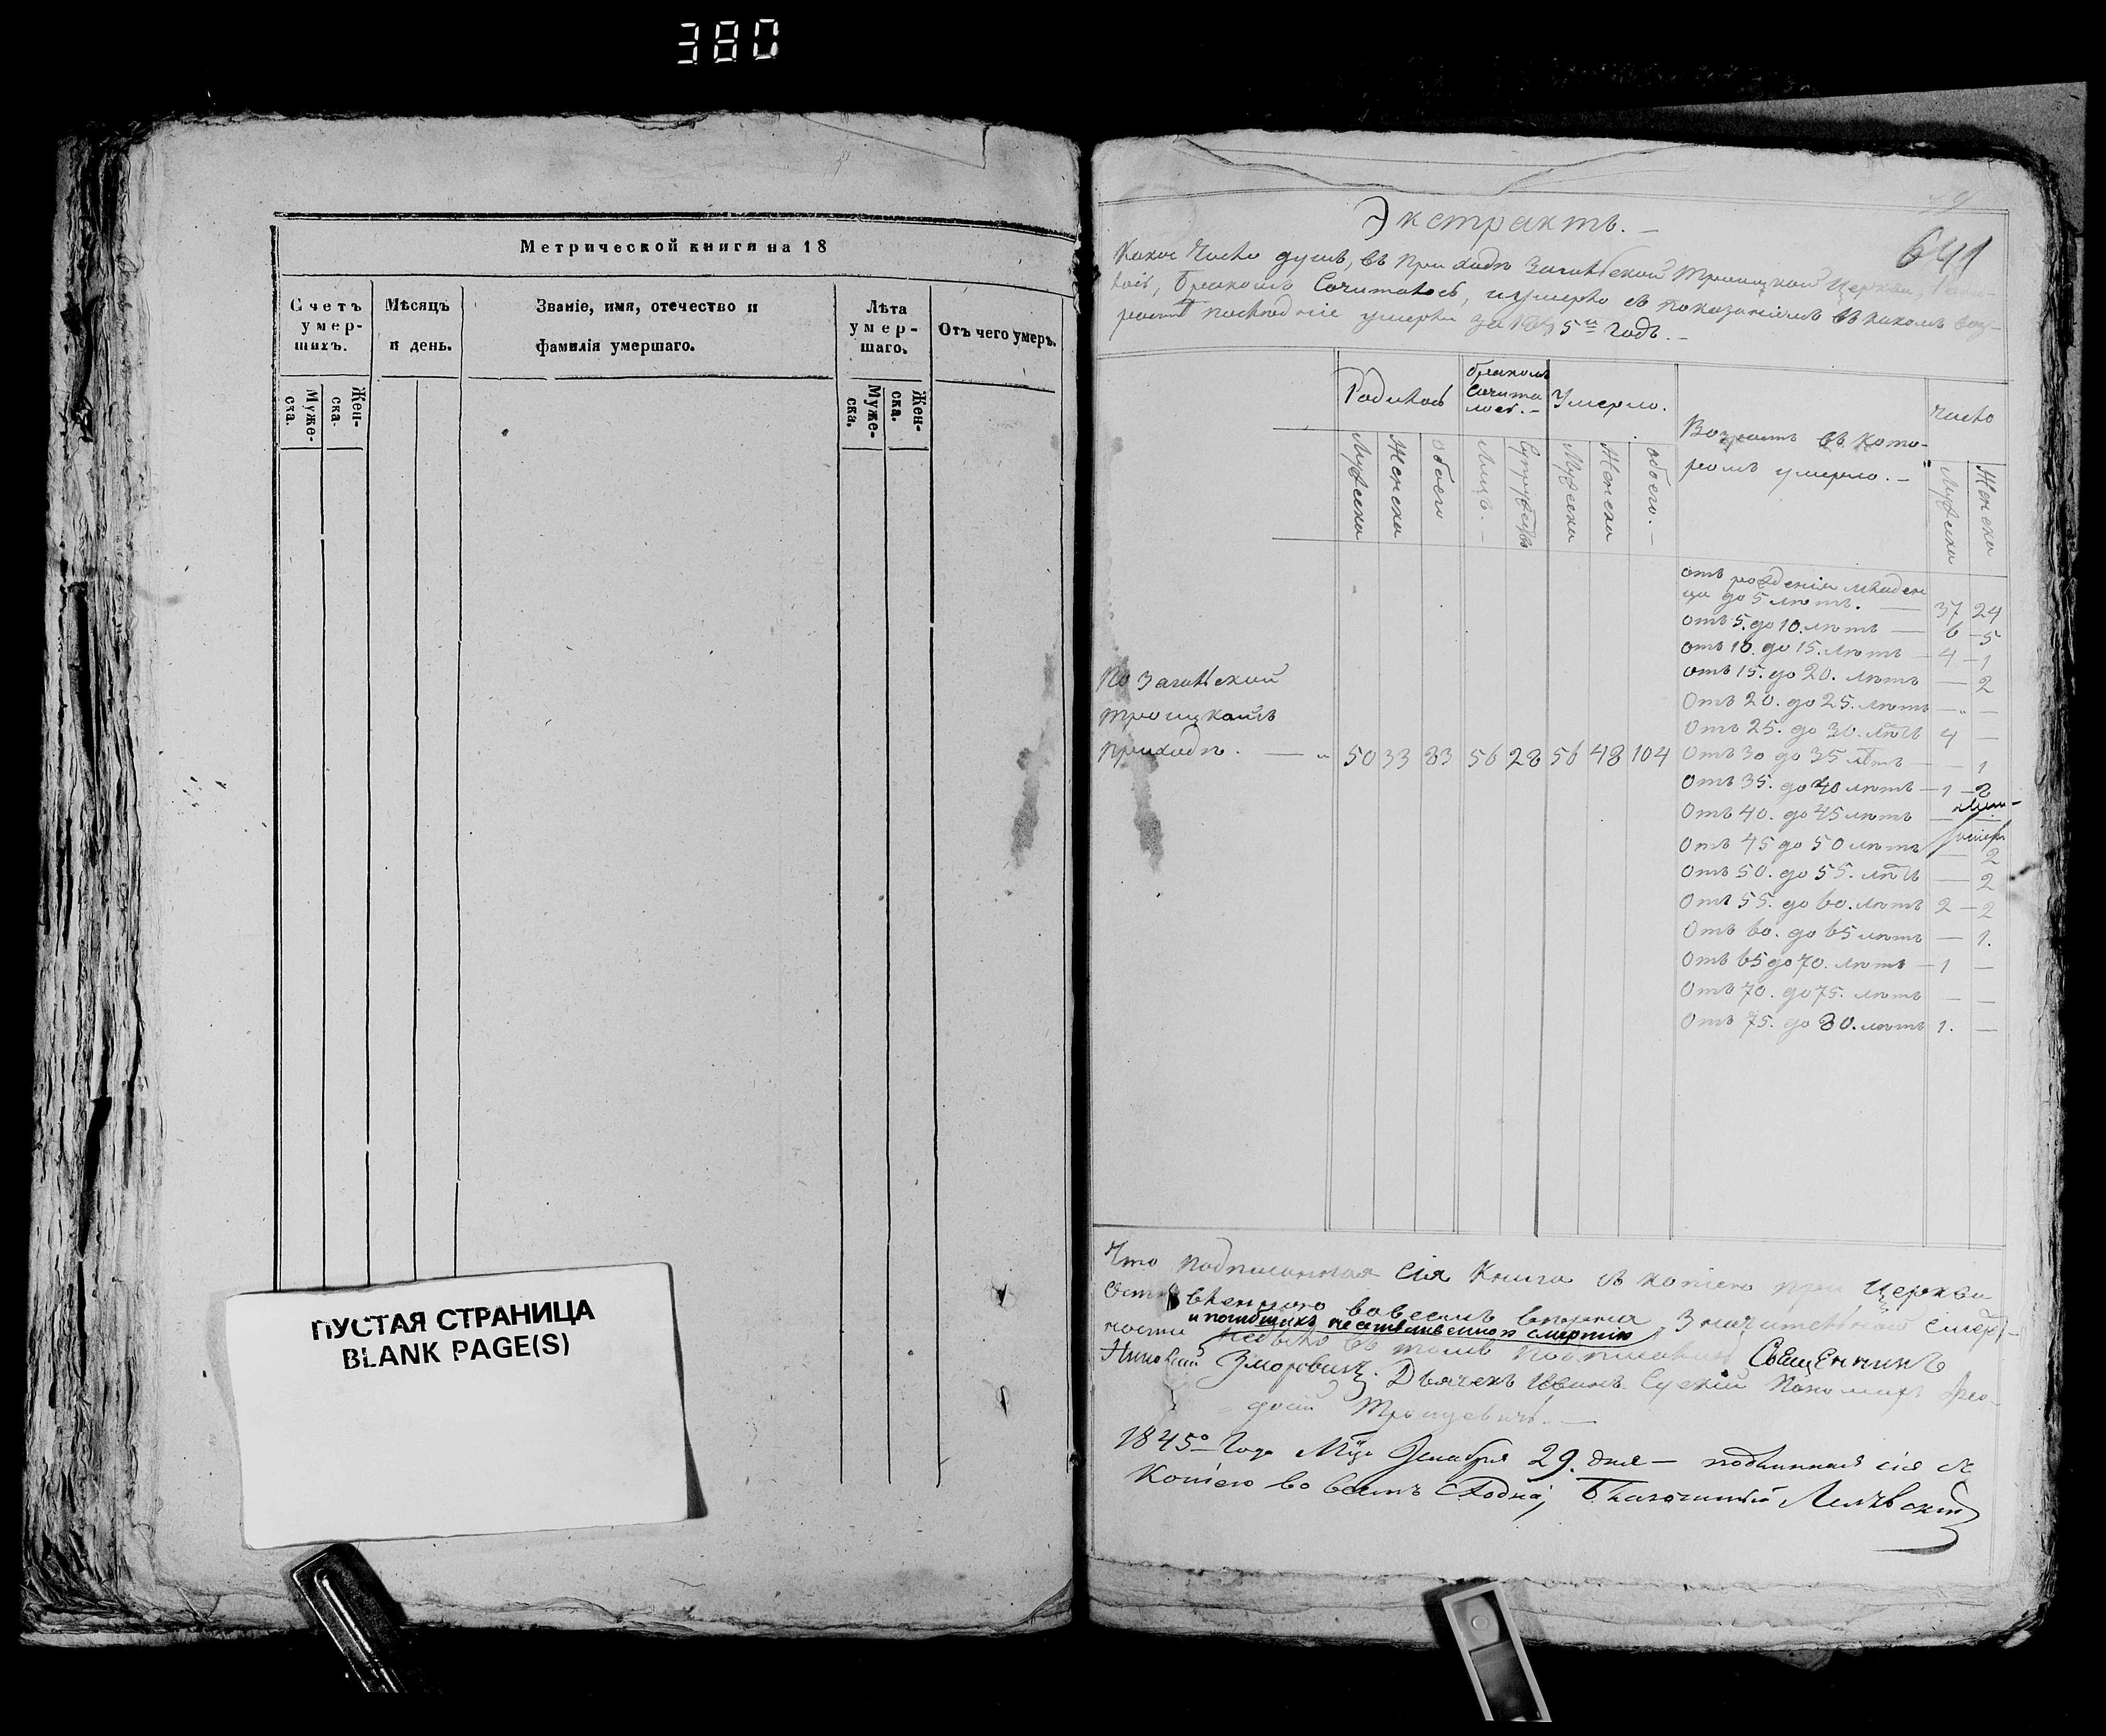 380
Метрической книги на 18
Счетъ умер- шихъ.
Мѣсяцъ и день.
Званіе, имя, отечество и фамилія умершаго.
Лѣта умер- шаго.
Отъ чего умеръ.
Муже- ска.
Жен- ска.
Муже- ска.
Жен- ска.
ПУСТАЯ СТРАНИЦА
BLANK PAGE(S)
Экстрактъ.
641
Какое число душъ, въ приходѣ Троицкой Церкви,
бракомъ Сочиталось, умерло съ показаніемъ въ какомъ воз-
умерли за 1845й годъ.
Родилось
бракомъ Сочита лось.
Умерло.
Возрастъ въ кото-
ромъ умерло.
число
Мужеска
Женска
обоего
Лицъ.
Супружествъ
Мужеска
Женска
обоего.
Мужеска
Женска
отъ рожденія младен
ца до 5 лѣтъ. — 37 24
отъ 5. до 10. лѣтъ — 6 - 5
отъ 10. до 15. лѣтъ — 4 - 1
отъ 15. до 20. лѣтъ — 2
Отъ 20. до 25. лѣтъ — —
Отъ 25. до 30. лѣтъ 4 —
По
троицкой
приходѣ. — 50 33 83 56 28 56 48 104
Отъ 30 до 35 лѣтъ — 1
Отъ 35. до 40 лѣтъ — 1 - 2
Отъ 40. до 45 лѣтъ —
Отъ 45 до 50 лѣтъ — 2
Отъ 50. до 55. лѣтъ — 2
Отъ 55. до 60. лѣтъ 2 - 2
Отъ 60. до 65 лѣтъ — 1.
Отъ 65 до 70. лѣтъ — 1 —
Отъ 70. до 75. лѣтъ — —
Отъ 75. до 80. лѣтъ 1. —
Что подписанная Сія Книга съ копіею при Церкви
вовсемъ вѣрна, Значительной смерт-
и погибшихъ неестественною смертію
ности въ томъ Священникъ
Николай Дьячекъ Иванъ Пономарь Ѳео-
досій
1845го Года Мца Декабря 29. дня — подлинная сія съ
Копіею во всемъ Сходна, Благочинный